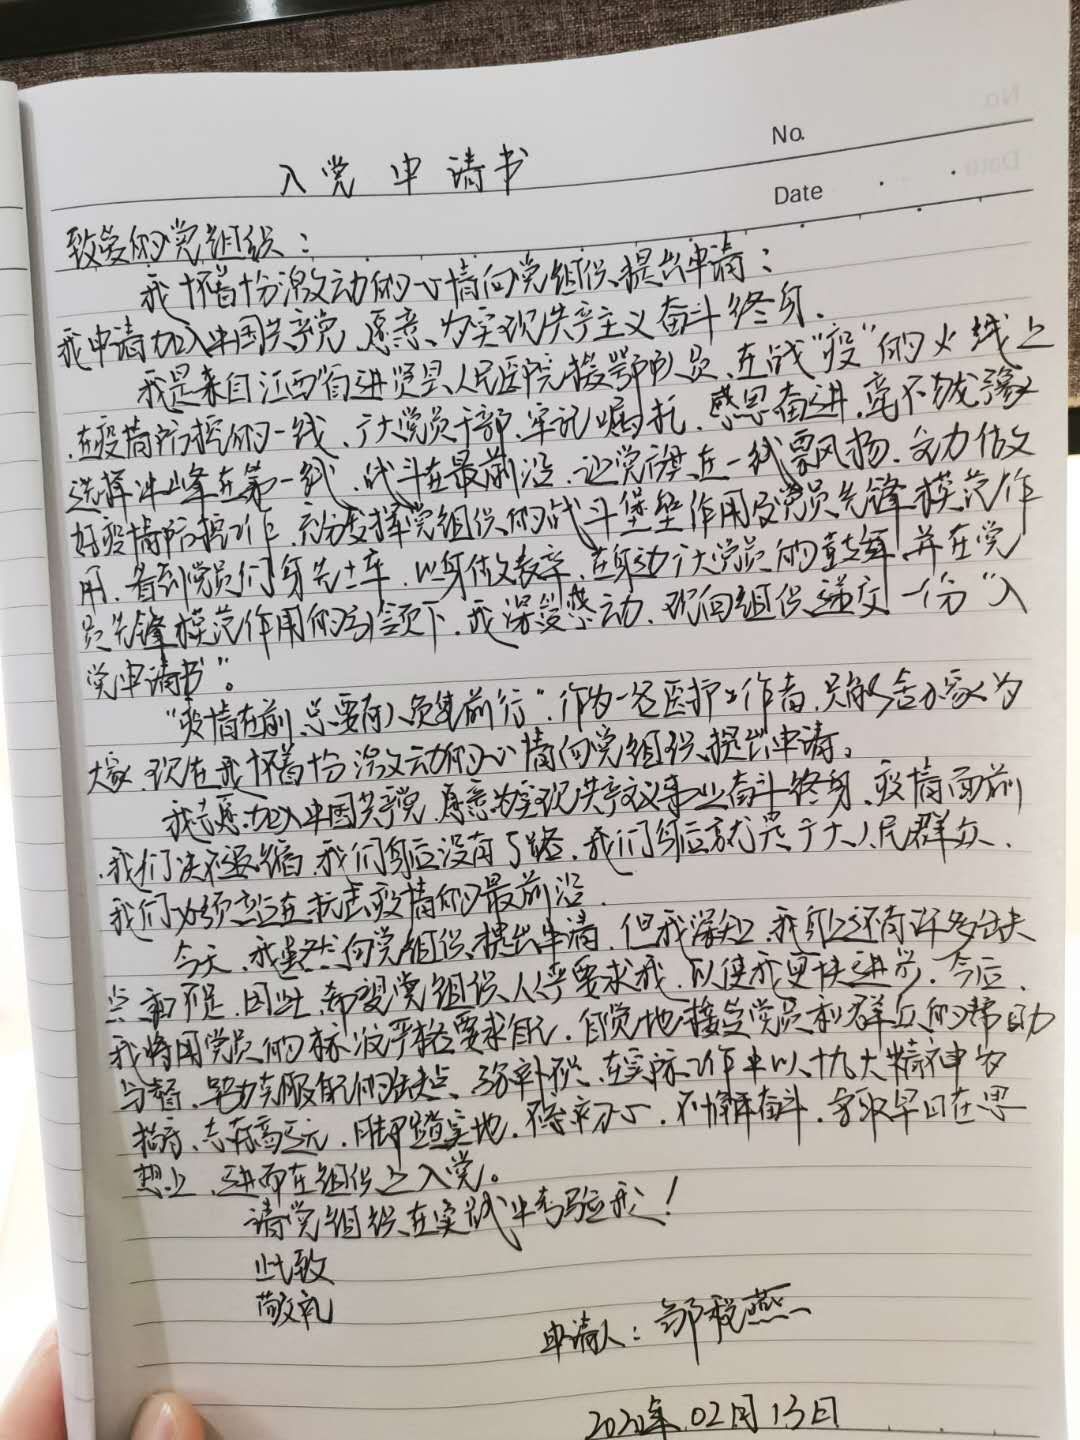 No.
Date
入党申请书
致爱的党组织：
我怀着十分激动的心情向党组织提出申请：
我申请加入中国共产党，愿意为实现共产主义奋斗终身。
我是来自江西省进贤县人民医院援鄂队员，在战“疫”的火线上
在疫情防控的一线，广大党员干部，牢记嘱托，感恩奋进，毫不犹豫
选择冲峰在第一线，战斗在最前沿，让党旗在一线飘扬，全力做
好疫情防控工作，充分发挥党组织的战斗堡垒作用及党员先锋模范作
用，看到党员们身先士卒，以身做表率，在身边广大党员的鼓舞，并在党
员先锋模范作用的引领下，我深受感动，现向组织递交一份“入
党申请书”。
“疫情在前，总要有人负重前行”，作为一名医护工作者，只能舍小家为
大家，现在我怀着十分激动的心情向党组织提出申请。
我志愿加入中国共产党，愿意为实现共产主义事业奋斗终身，疫情面前
，我们决不退缩，我们身后没有了路，我们身后就是广大人民群众，
我们必须站在抗击疫情的最前沿。
今天，我虽然向党组织提出申请，但我深知，我身上还有许多缺
点和不足，因此，希望党组织从严要求我，以使我更快进步，今后，
我将用党员的标准严格要求自己，自觉地接受党员和群众的帮助
与督，努力克服自己的缺点、弥补不足，在实际工作中以十九大精神为
指导，志存高远，脚踏实地，不懈奋斗，争取早日在思
想上，进而在组织上入党。
请党组织在实践中考验我！
此致
敬礼
申请人：邹税燕
2020年02月13日